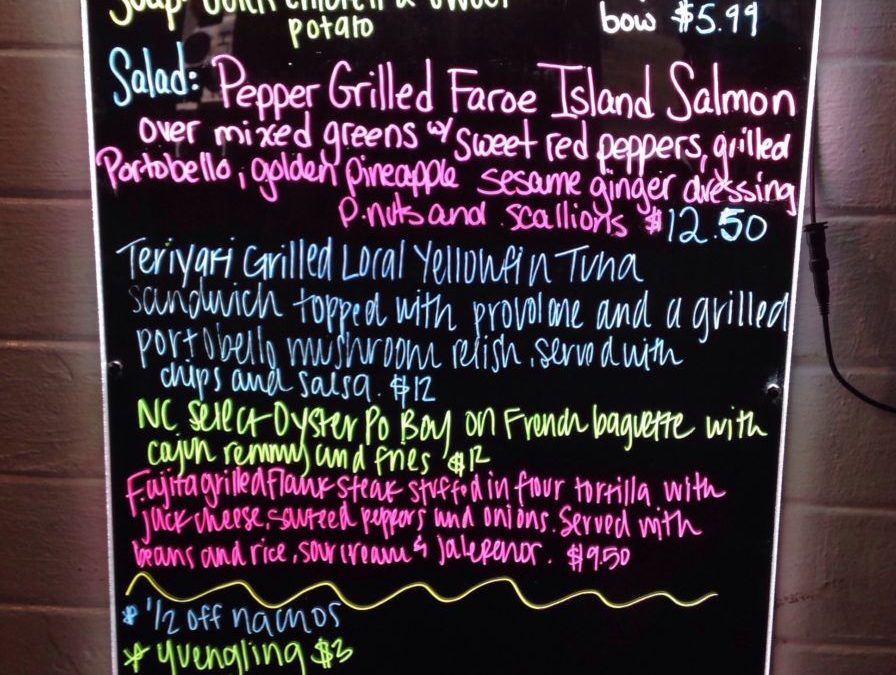 Soup: with chicken & sweet
potato
bow $5.99
Salad: Pepper Grilled Faroe Island Salmon
over mixed greens w/ sweet red peppers, grilled
Portobello, golden pineapple sesame ginger dressing
P.nuts and scallions $12.50
Teriyaki Grilled Local Yellowfin Tuna
sandwich topped with provolone and a grilled
portobello mushroom relish. served with
chips and salsa. $12
NC Select Oyster Po Boy on French baguette with
cajun remmy and fries $12
Fajita grilled Flank steak stuffed in flour tortilla with
jack cheese, sauteed peppers and onions. Served with
beans and rice, sour cream & jalepenor. $9.50
* 1/2 off nachos
* yuengling $3